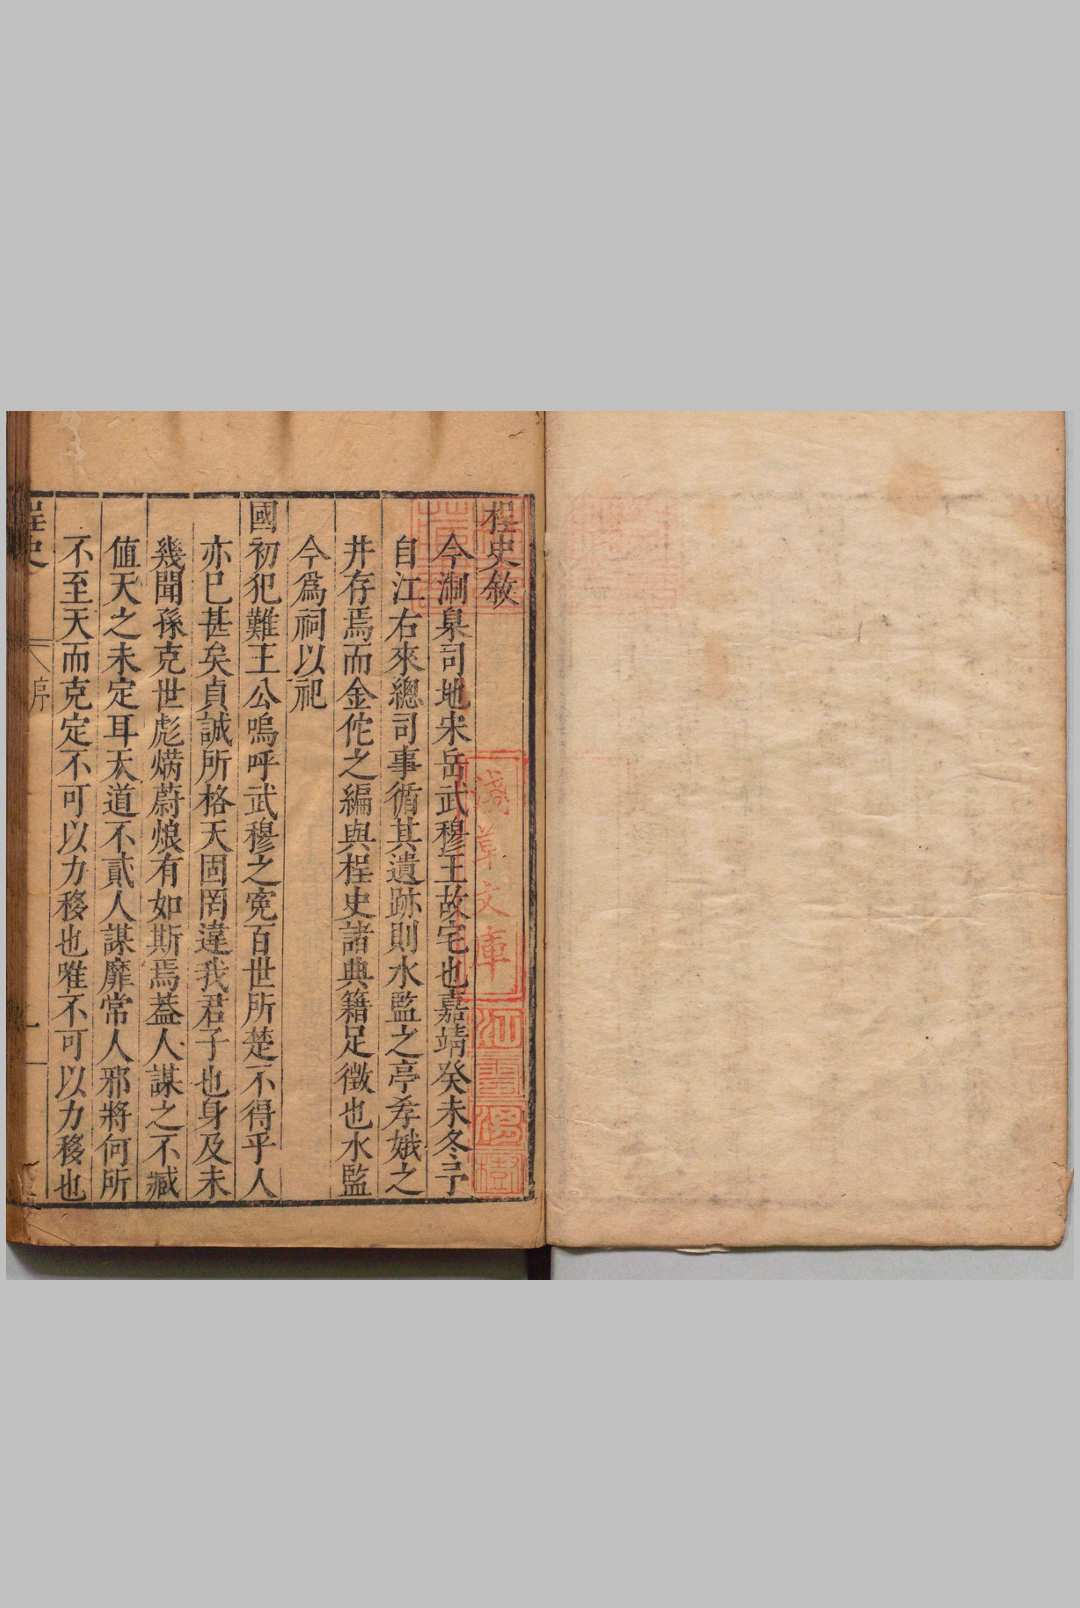 桯史敘
今淛臬司地宋岳武穆王故宅也嘉靖癸未冬予
自江右來總司事循其遺跡則水監之亭孝娥之
井存焉而金佗之編與桯史諸典籍足徵也水監
今爲祠以祀
國初犯難王公嗚呼武穆之寃百世所楚不得乎人
亦已甚矣貞誠所格天固罔違我君子也身及未
幾聞孫克世彪㷯蔚烺有如斯焉葢人謀之不臧
値天之未定耳天道不貳人謀靡常人邪將何所
不至天而克定不可以力移也唯不可以力移也
桯史
序
一
淺草文庫